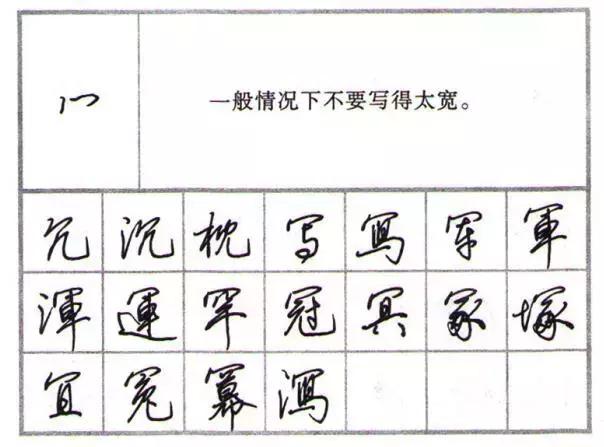 冖 一般情况下不要写得太宽。
冗 沉 枕 写 冩 军 軍
渾 運 罕 冠 冥 冢 塚
冝 冤 幂 瀉